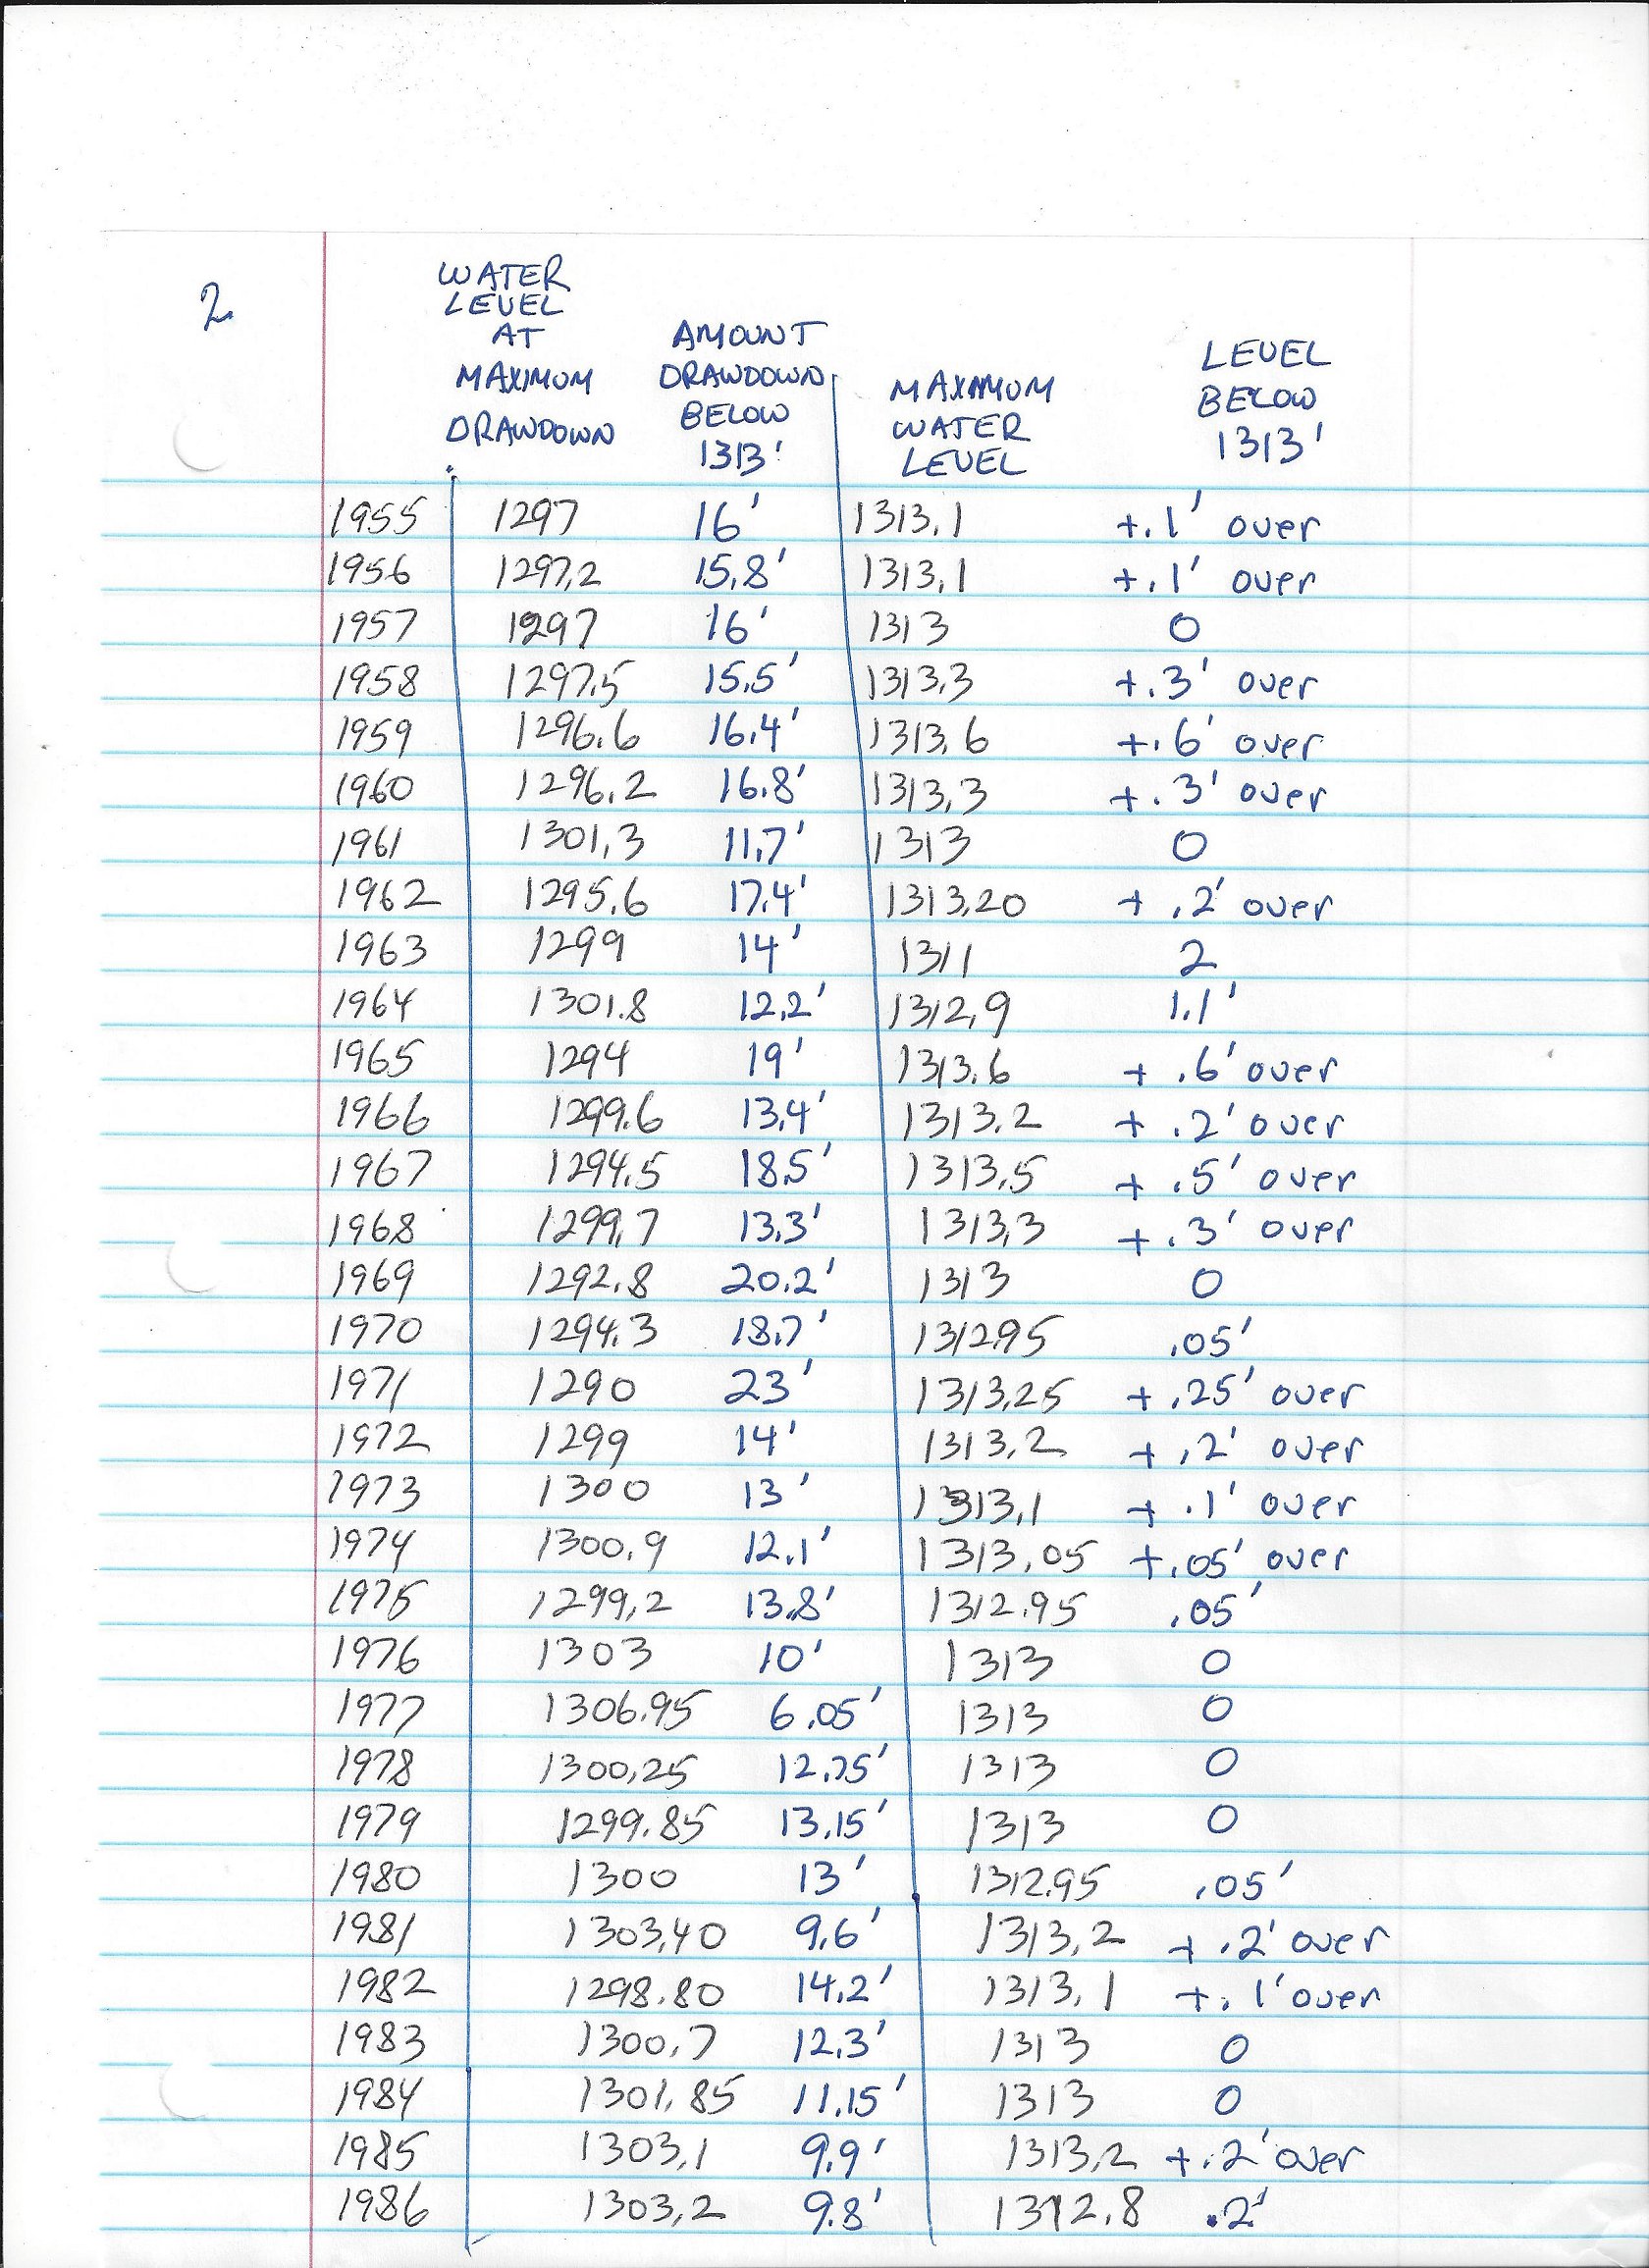 2
WATER
LEVEL
AT
MAXIMUM
DRAWDOWN
AMOUNT
DRAWDOWN
BELOW
1313'
MAXAMUM
WATER
LEVEL
LEVEL
BELOW
1313'
1955 1297 16' 1313.1 +.1' over
1956 1297.2 15.8' 1313.1 +.1' over
1957 1297 16' 1313 0
1958 1297.5 15.5' 1313.3 +.3' over
1959 1296.6 16.4' 1313.6 +.6' over
1960 1296.2 16.8' 1313.3 +.3' over
1961 1301.3 11.7' 1313 0
1962 1295.6 17.4' 1313.20 + .2' over
1963 1299 14' 1311 2
1964 1301.8 12.2' 1312.9 1.1'
1965 1294 19' 1313.6 + .6' over
1966 1299.6 13.4' 1313.2 + .2' over
1967 1294.5 18.5' 1313.5 + .5' over
1968 1299.7 13.3' 1313.3 + .3' over
1969 1292.8 20.2' 1313 0
1970 1294.3 18.7' 1312.95 .05'
1971 1290 23' 1313.25 + .25' over
1972 1299 14' 1313.2 + .2' over
1973 1300 13' 1313.1 + .1' over
1974 1300.9 12.1' 1313.05 +.05' over
1975 1299.2 13.8' 1312.95 .05'
1976 1303 10' 1313 0
1977 1306.95 6.05' 1313 0
1978 1300.25 12.75' 1313 0
1979 1299.85 13.15' 1313 0
1980 1300 13' 1312.95 .05'
1981 1303.40 9.6' 1313.2 + .2' over
1982 1298.80 14.2' 1313.1 +.1' over
1983 1300.7 12.3' 1313 0
1984 1301.85 11.15' 1313 0
1985 1303.1 9.9' 1313.2 +.2' over
1986 1303.2 9.8' 1312.8 .2'